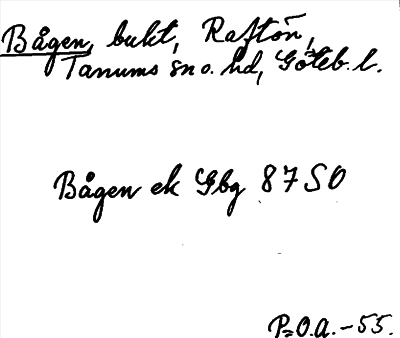 Bågen, bukt, Raftön,
Tanums sn o. hd, Göteb. l.
Bågen ek Gbg 87 SO
P.O.A. -55.